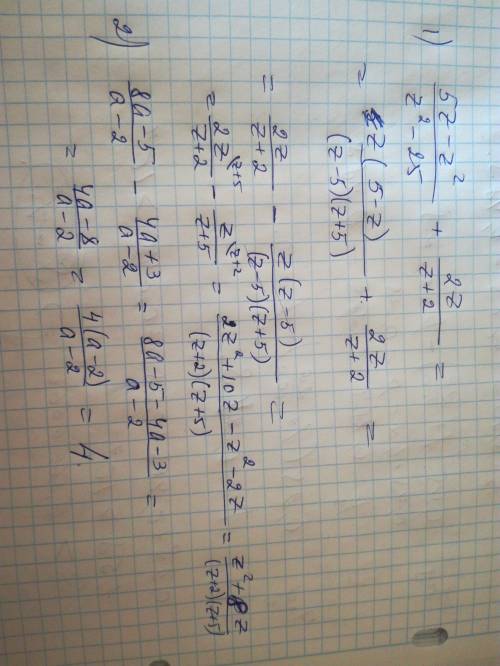 1) (5z - z²)/(z² - 25) + 2z/(z+2) =
= z(5-z)/((z-5)(z+5)) + 2z/(z+2) =
= 2z/(z+2) - z(z-5)/((z-5)(z+5)) =
= 2z^(z+5)/(z+2) - z^(z+2)/(z+5) = (2z²+10z-z²-2z)/((z+2)(z+5)) = (z²+8z)/((z+2)(z+5))
2) (8a-5)/(a-2) - (4a+3)/(a-2) = (8a-5-4a-3)/(a-2) =
= (4a-8)/(a-2) = 4(a-2)/(a-2) = 4.